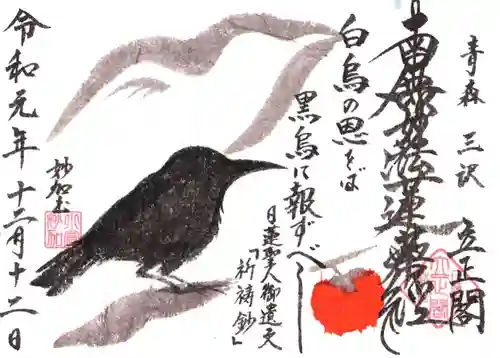 青森 三沢 立正閣
南無妙法蓮華経
白烏の恩をば
黒烏に報ずべし
日蓮聖人御遺文
「祈祷鈔」
妙加まま
令和元年十二月十二日